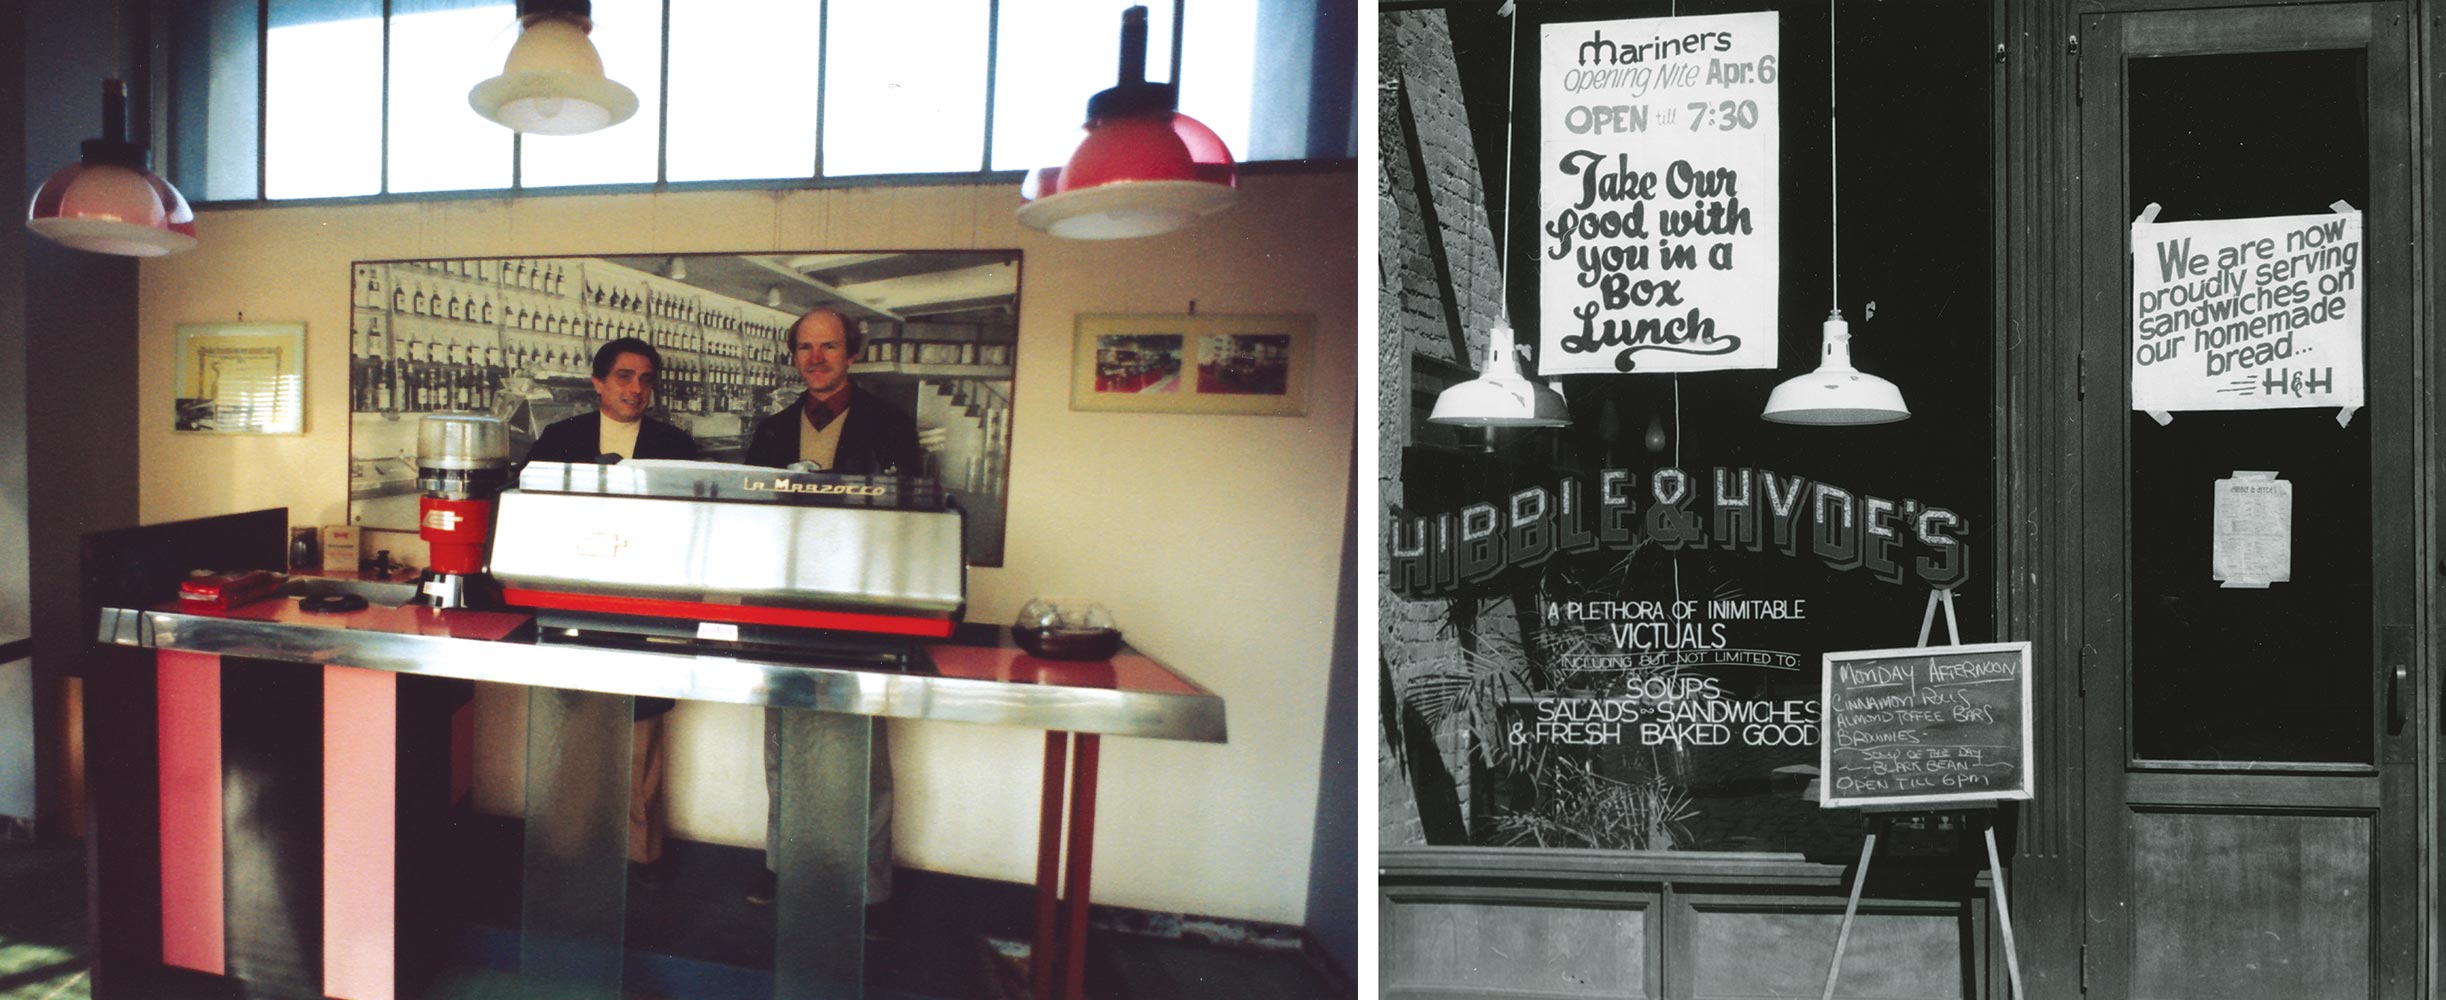 La Marzocco
mariners
Opening Nite Apr. 6
OPEN till 7:30
Take Our
food with
you in a
Box
Lunch
We are now
proudly serving
sandwiches on
our homemade
bread...
H&H
HIBBLE & HYDE'S
A PLETHORA OF INIMITABLE
VICTUALS
INCLUDING BUT NOT LIMITED TO:
SOUPS
SALADS SANDWICHES
& FRESH BAKED GOOD
MONDAY AFTERNOON
CINNAMON ROLLS
ALMOND TOFFEE BARS
BROWNIES
SOUP OF THE DAY
BLACK BEAN
OPEN TILL 6PM